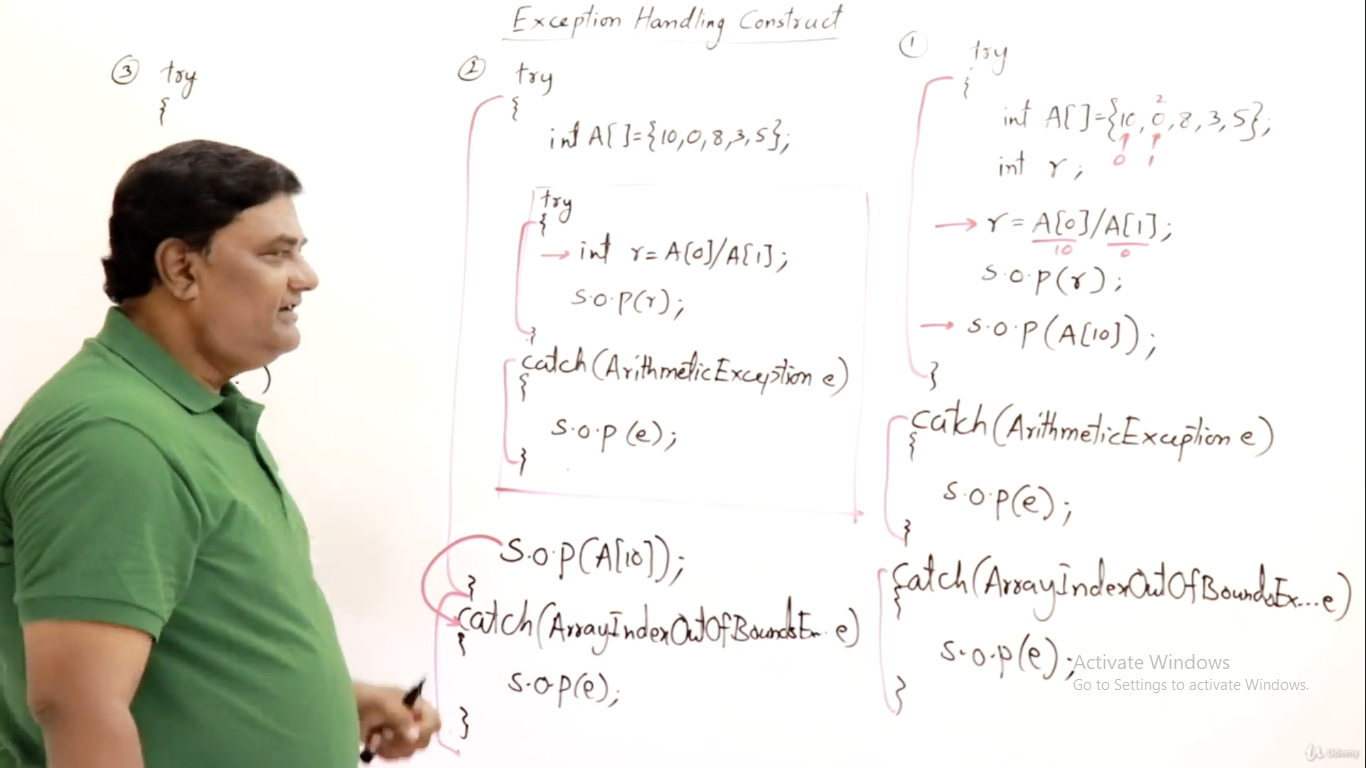 Exception Handling Construct
① try
{
int A[]={10,0,8,3,5};
2
0 1
int r;
r=A[0]/A[1];
10 0
S.O.P(r);
S.O.P(A[10]);
}
catch(ArithmeticException e)
{
S.O.P(e);
}
catch(ArrayIndexOutOfBoundsEx... e)
{
S.O.P(e);
}
② try
{
int A[]={10,0,8,3,5};
try
{
int r=A[0]/A[1];
S.O.P(r);
}
catch(ArithmeticException e)
{
S.O.P(e);
}
S.O.P(A[10]);
}
catch(ArrayIndexOutOfBoundsEx.. e)
{
S.O.P(e);
}
③ try
{
)
Activate Windows
Go to Settings to activate Windows.
Udemy